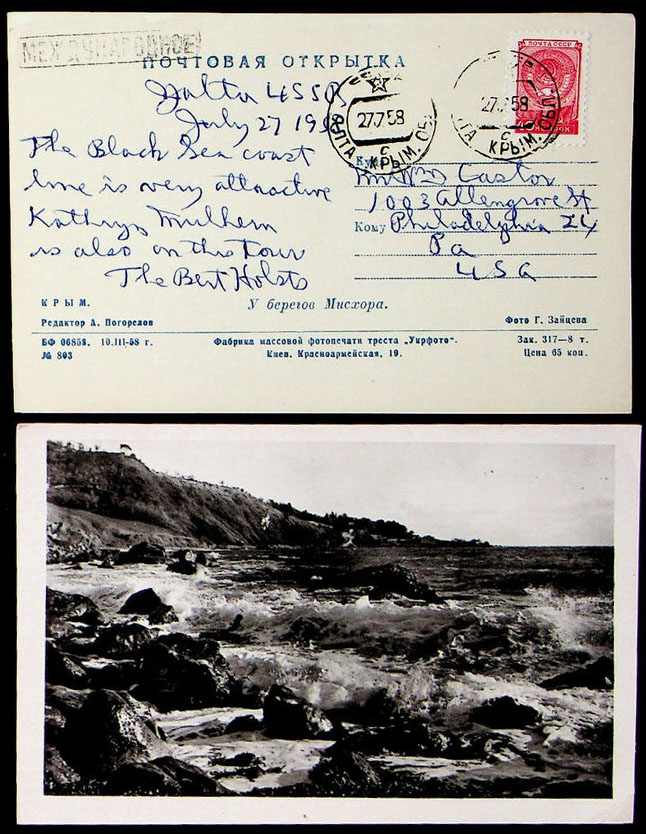 МЕЖДУНАРОДНОЕ
ПОЧТОВАЯ ОТКРЫТКА
ПОЧТА СССР
Yalta USSR
July 27 1958
27.7.58
ЯЛТА КРЫМ. ОБЛ.
С
27.7.58
ЛТА КРЫМ. ОБЛ.
С
The Black Sea coast
line is very attractive
Kathryn Mulhern
is also on this tour
The Bert Holsts
Куда
Castor
1003 Allengrove St
Кому Philadelphia 24
Pa
USA
КРЫМ.
У берегов Мисхора.
Редактор А. Погорелов
Фото Г. Зайцева
БФ 06858. 10.III-58 г.
Фабрика массовой фотопечати треста „Укрфото“.
Зак. 317—8 т.
№ 803
Киев. Красноармейская, 19.
Цена 65 коп.